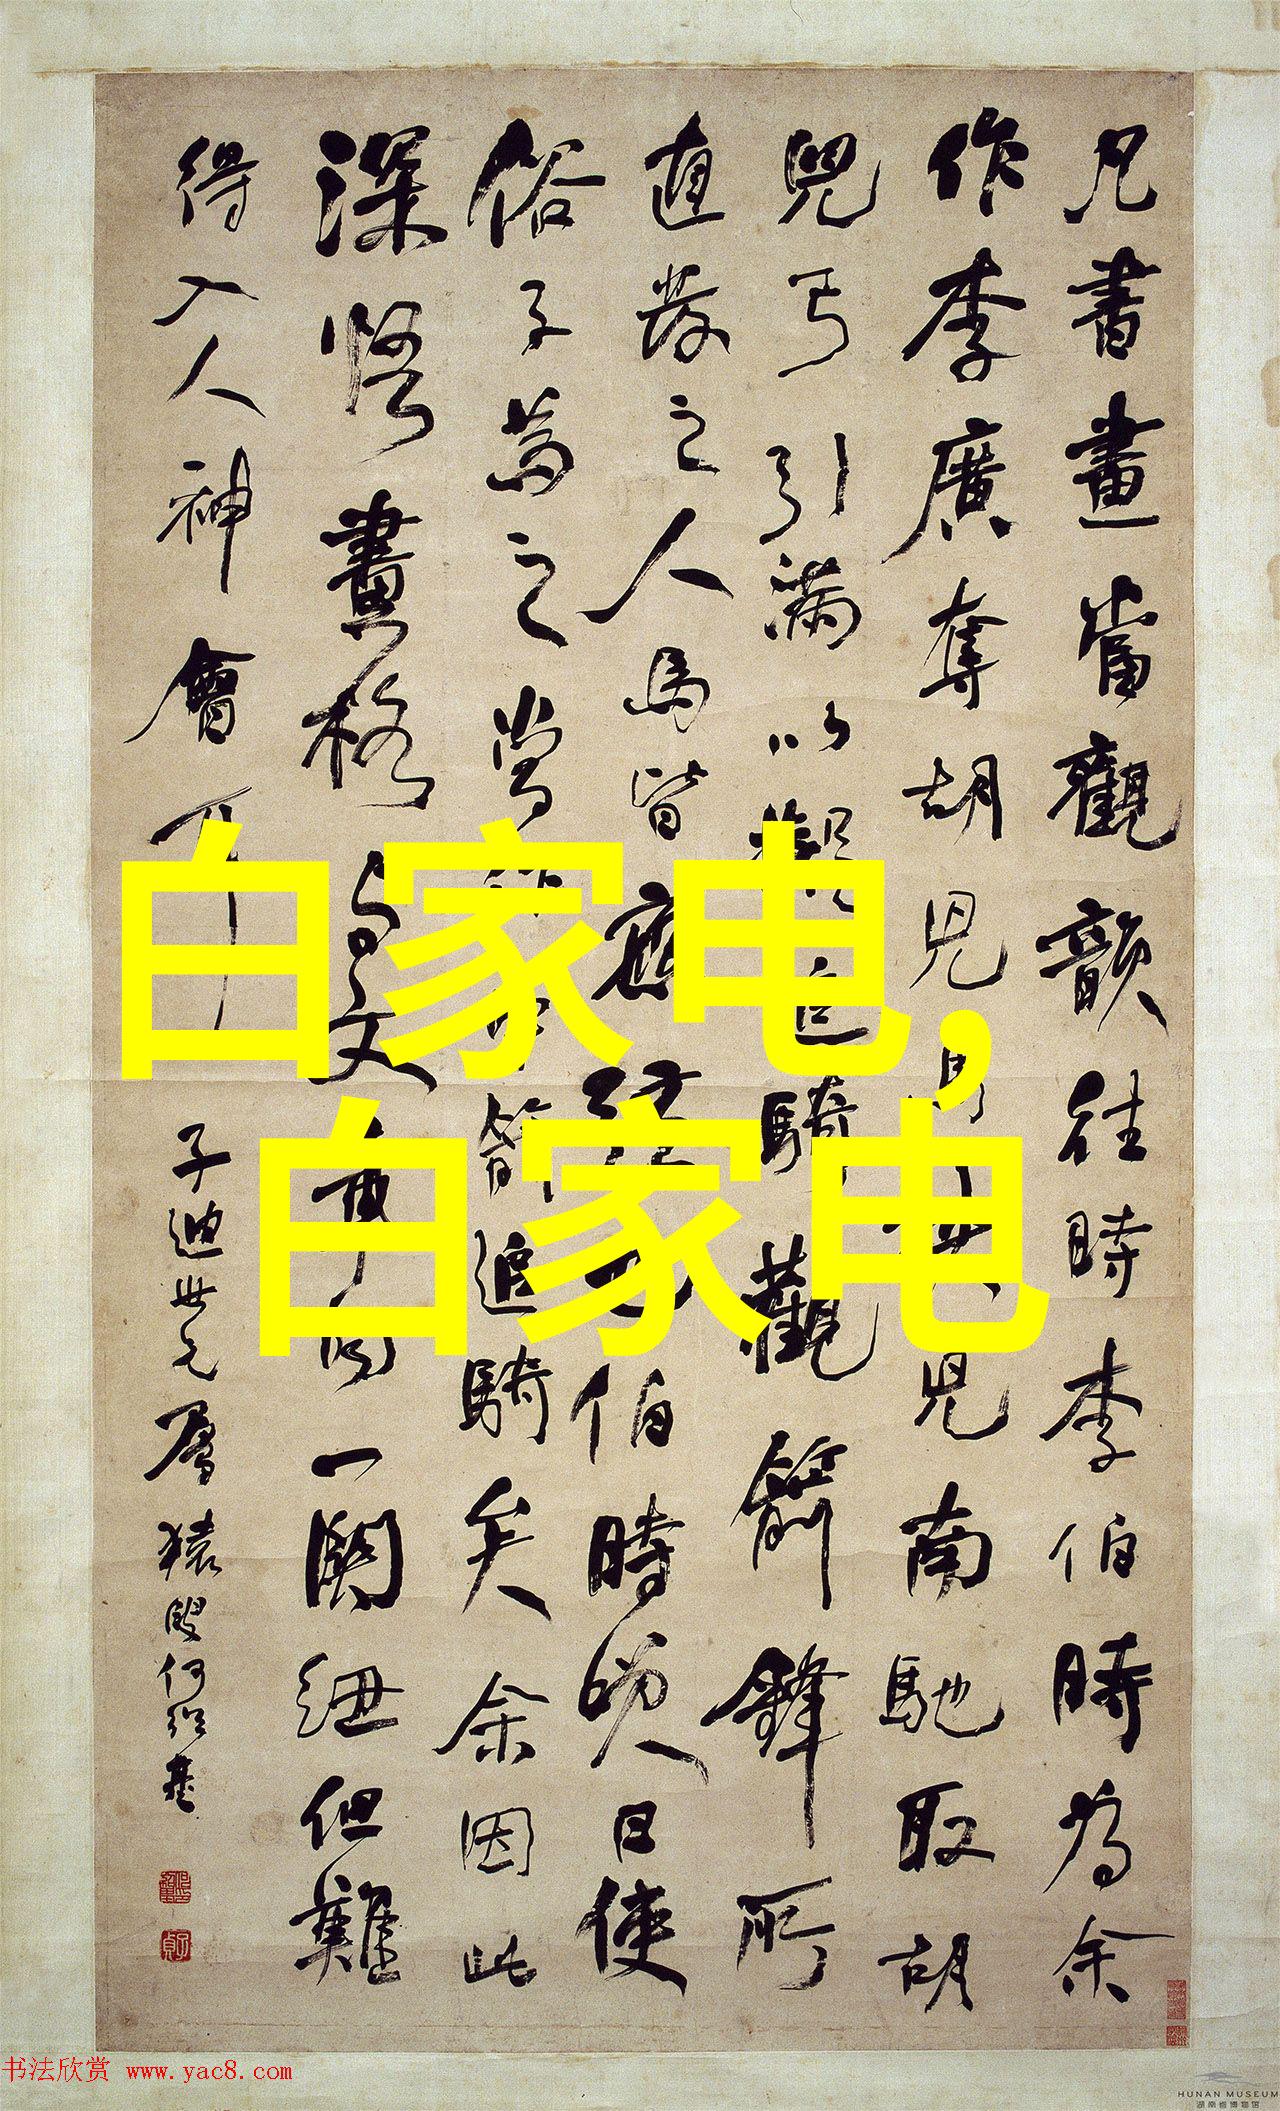 凡書畫當觀韻往時李伯時為余
作李廣奪胡兒馬挾兒南馳取胡
兒弓引滿以擬追騎觀箭鋒所
直發之人馬皆應弦也伯時笑曰使
俗子為之當作中箭追騎矣余因此
深悟畫格與文章同一關紐但難
得入人神會耳
子迪世兄屬 猨叟何紹基
白家电,
白家电
书法欣赏 www.yac8.com
HUNAN MUSEUM
湖南省博物馆